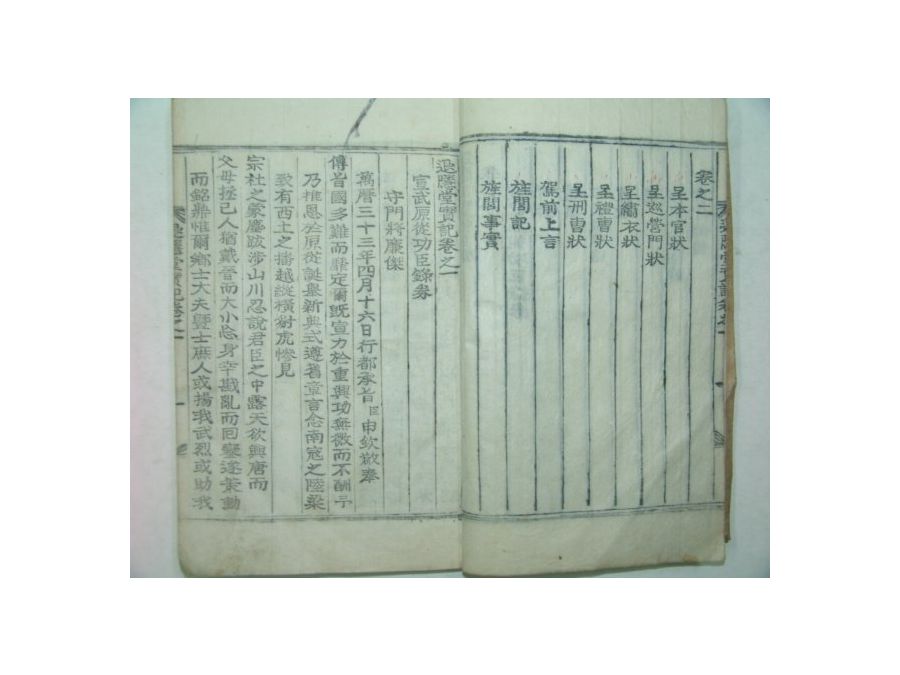 卷之二
呈本官狀
呈巡營門狀
呈繡衣狀
呈禮曹狀
呈刑曹狀
駕前上言
旌閭記
旌閭事實
退隱堂實記卷之一
宣武原從功臣錄券
守門將康傑
萬曆三十三年四月十六日行都承旨臣申欽敬奉
傳旨國多難而鼎定爾旣宣力於重興功無微而不酬予
乃推恩於原從誕擧新典式遵舊章言念南寇之陸梁
致有西土之播越縱橫豺虎慘見
宗社之蒙塵跋涉山川忍說君臣之中露天欲興唐而
父母拯己人猶戴晉而大小忘身幸戡亂而回鑾遂策勳
而銘鼎惟爾鄕士大夫曁士庶人或揚我武烈或助我